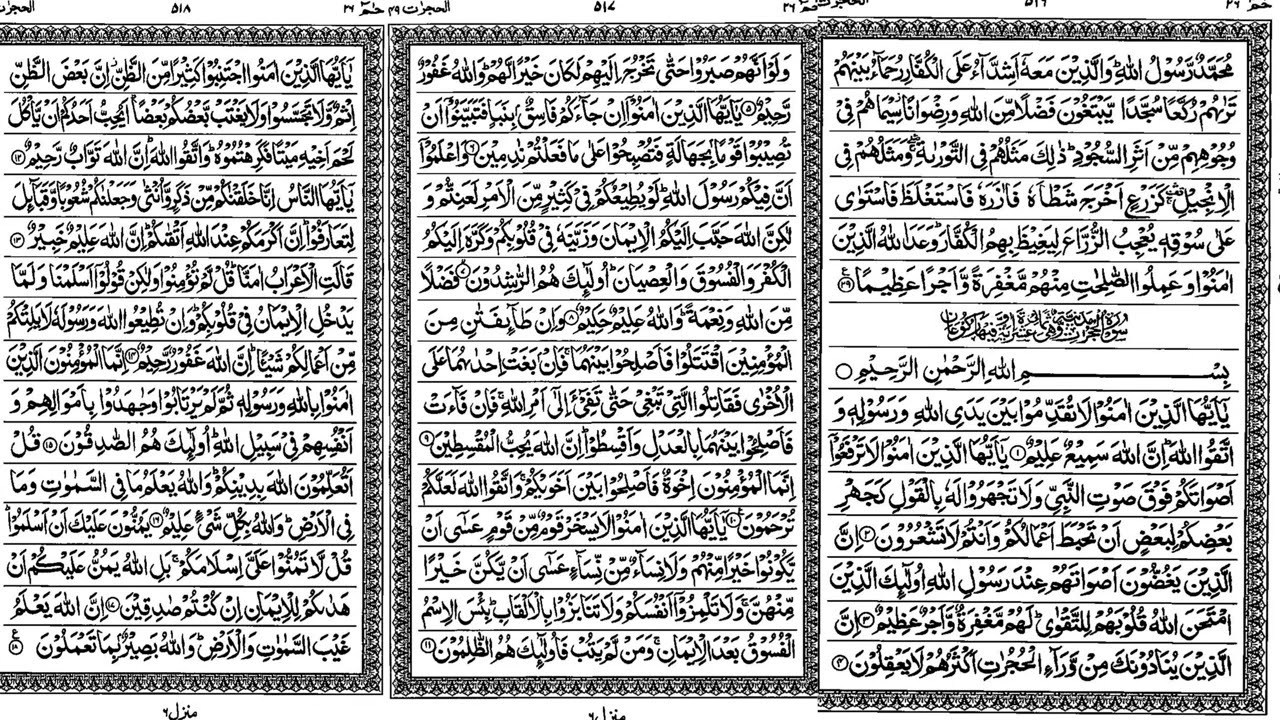 حٰمٓ ٢٦
٥١٦
الحجرٰت
مُحَمَّدٌ رَّسُوْلُ اللّٰهِ ؕ وَالَّذِيْنَ مَعَهٗۤ اَشِدَّآءُ عَلَى الْكُفَّارِ رُحَمَآءُ بَيْنَهُمْ
تَرٰىهُمْ رُكَّعًا سُجَّدًا يَّبْتَغُوْنَ فَضْلًا مِّنَ اللّٰهِ وَرِضْوَانًا سِيْمَاهُمْ فِيْ
وُجُوْهِهِمْ مِّنْ اَثَرِ السُّجُوْدِ ؕ ذٰلِكَ مَثَلُهُمْ فِي التَّوْرٰىةِ ۛۖ وَمَثَلُهُمْ فِي
الْاِنْجِيْلِ ۛ كَزَرْعٍ اَخْرَجَ شَطْـَٔهٗ فَاٰزَرَهٗ فَاسْتَغْلَظَ فَاسْتَوٰى
عَلٰى سُوْقِهٖ يُعْجِبُ الزُّرَّاعَ لِيَغِيْظَ بِهِمُ الْكُفَّارَ ؕ وَعَدَ اللّٰهُ الَّذِيْنَ
اٰمَنُوْا وَعَمِلُوا الصّٰلِحٰتِ مِنْهُمْ مَّغْفِرَةً وَّاَجْرًا عَظِيْمًا ۲۹
بِسْمِ اللّٰهِ الرَّحْمٰنِ الرَّحِيْمِ
يٰۤاَيُّهَا الَّذِيْنَ اٰمَنُوْا لَا تُقَدِّمُوْا بَيْنَ يَدَيِ اللّٰهِ وَرَسُوْلِهٖ وَ
اتَّقُوا اللّٰهَ ؕ اِنَّ اللّٰهَ سَمِيْعٌ عَلِيْمٌ ۱ يٰۤاَيُّهَا الَّذِيْنَ اٰمَنُوْا لَا تَرْفَعُوْۤا
اَصْوَاتَكُمْ فَوْقَ صَوْتِ النَّبِيِّ وَلَا تَجْهَرُوْا لَهٗ بِالْقَوْلِ كَجَهْرِ
بَعْضِكُمْ لِبَعْضٍ اَنْ تَحْبَطَ اَعْمَالُكُمْ وَاَنْتُمْ لَا تَشْعُرُوْنَ ۲ اِنَّ
الَّذِيْنَ يَغُضُّوْنَ اَصْوَاتَهُمْ عِنْدَ رَسُوْلِ اللّٰهِ اُولٰٓئِكَ الَّذِيْنَ
امْتَحَنَ اللّٰهُ قُلُوْبَهُمْ لِلتَّقْوٰى ؕ لَهُمْ مَّغْفِرَةٌ وَّاَجْرٌ عَظِيْمٌ ۳ اِنَّ
الَّذِيْنَ يُنَادُوْنَكَ مِنْ وَّرَآءِ الْحُجُرٰتِ اَكْثَرُهُمْ لَا يَعْقِلُوْنَ ۴
٢٦
٥١٧
الحجرٰت ٤٩
وَلَوْ اَنَّهُمْ صَبَرُوْا حَتّٰى تَخْرُجَ اِلَيْهِمْ لَكَانَ خَيْرًا لَّهُمْ ؕ وَاللّٰهُ غَفُوْرٌ
رَّحِيْمٌ ۵ يٰۤاَيُّهَا الَّذِيْنَ اٰمَنُوْۤا اِنْ جَآءَكُمْ فَاسِقٌۢ بِنَبَاٍ فَتَبَيَّنُوْۤا اَنْ
تُصِيْبُوْا قَوْمًۢا بِجَهَالَةٍ فَتُصْبِحُوْا عَلٰى مَا فَعَلْتُمْ نٰدِمِيْنَ ۶ وَاعْلَمُوْۤا
اَنَّ فِيْكُمْ رَسُوْلَ اللّٰهِ ؕ لَوْ يُطِيْعُكُمْ فِيْ كَثِيْرٍ مِّنَ الْاَمْرِ لَعَنِتُّمْ وَ
لٰكِنَّ اللّٰهَ حَبَّبَ اِلَيْكُمُ الْاِيْمَانَ وَزَيَّنَهٗ فِيْ قُلُوْبِكُمْ وَكَرَّهَ اِلَيْكُمُ
الْكُفْرَ وَالْفُسُوْقَ وَالْعِصْيَانَ ؕ اُولٰٓئِكَ هُمُ الرّٰشِدُوْنَ ۷ فَضْلًا
مِّنَ اللّٰهِ وَنِعْمَةً ؕ وَاللّٰهُ عَلِيْمٌ حَكِيْمٌ ۸ وَاِنْ طَآئِفَتٰنِ مِنَ
الْمُؤْمِنِيْنَ اقْتَتَلُوْا فَاَصْلِحُوْا بَيْنَهُمَا ۚ فَاِنْۢ بَغَتْ اِحْدٰىهُمَا عَلَى
الْاُخْرٰى فَقَاتِلُوا الَّتِيْ تَبْغِيْ حَتّٰى تَفِيْٓءَ اِلٰۤى اَمْرِ اللّٰهِ ۚ فَاِنْ فَآءَتْ
فَاَصْلِحُوْا بَيْنَهُمَا بِالْعَدْلِ وَاَقْسِطُوْا ؕ اِنَّ اللّٰهَ يُحِبُّ الْمُقْسِطِيْنَ ۹
اِنَّمَا الْمُؤْمِنُوْنَ اِخْوَةٌ فَاَصْلِحُوْا بَيْنَ اَخَوَيْكُمْ ۚ وَاتَّقُوا اللّٰهَ لَعَلَّكُمْ
تُرْحَمُوْنَ ۱۰ يٰۤاَيُّهَا الَّذِيْنَ اٰمَنُوْا لَا يَسْخَرْ قَوْمٌ مِّنْ قَوْمٍ عَسٰۤى اَنْ
يَّكُوْنُوْا خَيْرًا مِّنْهُمْ وَلَا نِسَآءٌ مِّنْ نِّسَآءٍ عَسٰۤى اَنْ يَّكُنَّ خَيْرًا
مِّنْهُنَّ ۚ وَلَا تَلْمِزُوْۤا اَنْفُسَكُمْ وَلَا تَنَابَزُوْا بِالْاَلْقَابِ ؕ بِئْسَ الِاسْمُ
الْفُسُوْقُ بَعْدَ الْاِيْمَانِ ۚ وَمَنْ لَّمْ يَتُبْ فَاُولٰٓئِكَ هُمُ الظّٰلِمُوْنَ ۱۱
منزل ٦
حٰمٓ ٢٦
٥١٨
الحجرٰت
يٰۤاَيُّهَا الَّذِيْنَ اٰمَنُوا اجْتَنِبُوْا كَثِيْرًا مِّنَ الظَّنِّ ؗ اِنَّ بَعْضَ الظَّنِّ
اِثْمٌ وَّلَا تَجَسَّسُوْا وَلَا يَغْتَبْ بَّعْضُكُمْ بَعْضًا ؕ اَيُحِبُّ اَحَدُكُمْ اَنْ يَّاْكُلَ
لَحْمَ اَخِيْهِ مَيْتًا فَكَرِهْتُمُوْهُ ؕ وَاتَّقُوا اللّٰهَ ؕ اِنَّ اللّٰهَ تَوَّابٌ رَّحِيْمٌ ۱۲
يٰۤاَيُّهَا النَّاسُ اِنَّا خَلَقْنٰكُمْ مِّنْ ذَكَرٍ وَّاُنْثٰى وَجَعَلْنٰكُمْ شُعُوْبًا وَّقَبَآئِلَ
لِتَعَارَفُوْا ؕ اِنَّ اَكْرَمَكُمْ عِنْدَ اللّٰهِ اَتْقٰىكُمْ ؕ اِنَّ اللّٰهَ عَلِيْمٌ خَبِيْرٌ ۱۳
قَالَتِ الْاَعْرَابُ اٰمَنَّا ؕ قُلْ لَّمْ تُؤْمِنُوْا وَلٰكِنْ قُوْلُوْۤا اَسْلَمْنَا وَلَمَّا
يَدْخُلِ الْاِيْمَانُ فِيْ قُلُوْبِكُمْ ؕ وَاِنْ تُطِيْعُوا اللّٰهَ وَرَسُوْلَهٗ لَا يَلِتْكُمْ
مِّنْ اَعْمَالِكُمْ شَيْـًٔا ؕ اِنَّ اللّٰهَ غَفُوْرٌ رَّحِيْمٌ ۱۴ اِنَّمَا الْمُؤْمِنُوْنَ الَّذِيْنَ
اٰمَنُوْا بِاللّٰهِ وَرَسُوْلِهٖ ثُمَّ لَمْ يَرْتَابُوْا وَجٰهَدُوْا بِاَمْوَالِهِمْ وَ
اَنْفُسِهِمْ فِيْ سَبِيْلِ اللّٰهِ ؕ اُولٰٓئِكَ هُمُ الصّٰدِقُوْنَ ۱۵ قُلْ
اَتُعَلِّمُوْنَ اللّٰهَ بِدِيْنِكُمْ ؕ وَاللّٰهُ يَعْلَمُ مَا فِي السَّمٰوٰتِ وَمَا
فِي الْاَرْضِ ؕ وَاللّٰهُ بِكُلِّ شَيْءٍ عَلِيْمٌ ۱۶ يَمُنُّوْنَ عَلَيْكَ اَنْ اَسْلَمُوْا ؕ
قُلْ لَّا تَمُنُّوْا عَلَيَّ اِسْلَامَكُمْ ۚ بَلِ اللّٰهُ يَمُنُّ عَلَيْكُمْ اَنْ
هَدٰىكُمْ لِلْاِيْمَانِ اِنْ كُنْتُمْ صٰدِقِيْنَ ۱۷ اِنَّ اللّٰهَ يَعْلَمُ
غَيْبَ السَّمٰوٰتِ وَالْاَرْضِ ؕ وَاللّٰهُ بَصِيْرٌۢ بِمَا تَعْمَلُوْنَ ۱۸
منزل ٦